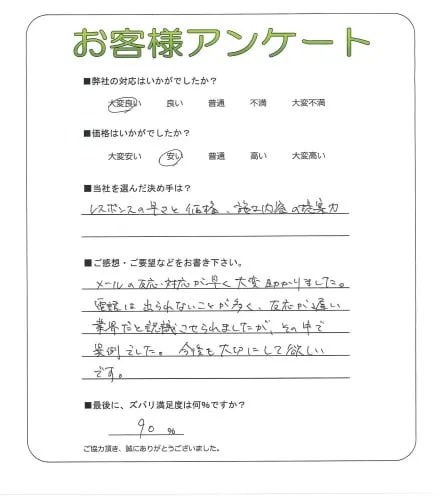 お客様アンケート
■弊社の対応はいかがでしたか?
大変良い 良い 普通 不満 大変不満
■価格はいかがでしたか?
大変安い 安い 普通 高い 大変高い
■当社を選んだ決め手は?
レスポンスの早さと価格、施工内容の提案力
■ご感想・ご要望などをお書き下さい。
メールの反応・対応が早く大変助かりました。
電話は出られないことが多く、反応が遅い
業界だと認識させられましたが、その中で
異例でした。今後も大切にして欲しい
です。
■最後に、ズバリ満足度は何%ですか?
90 %
ご協力頂き、誠にありがとうございました。